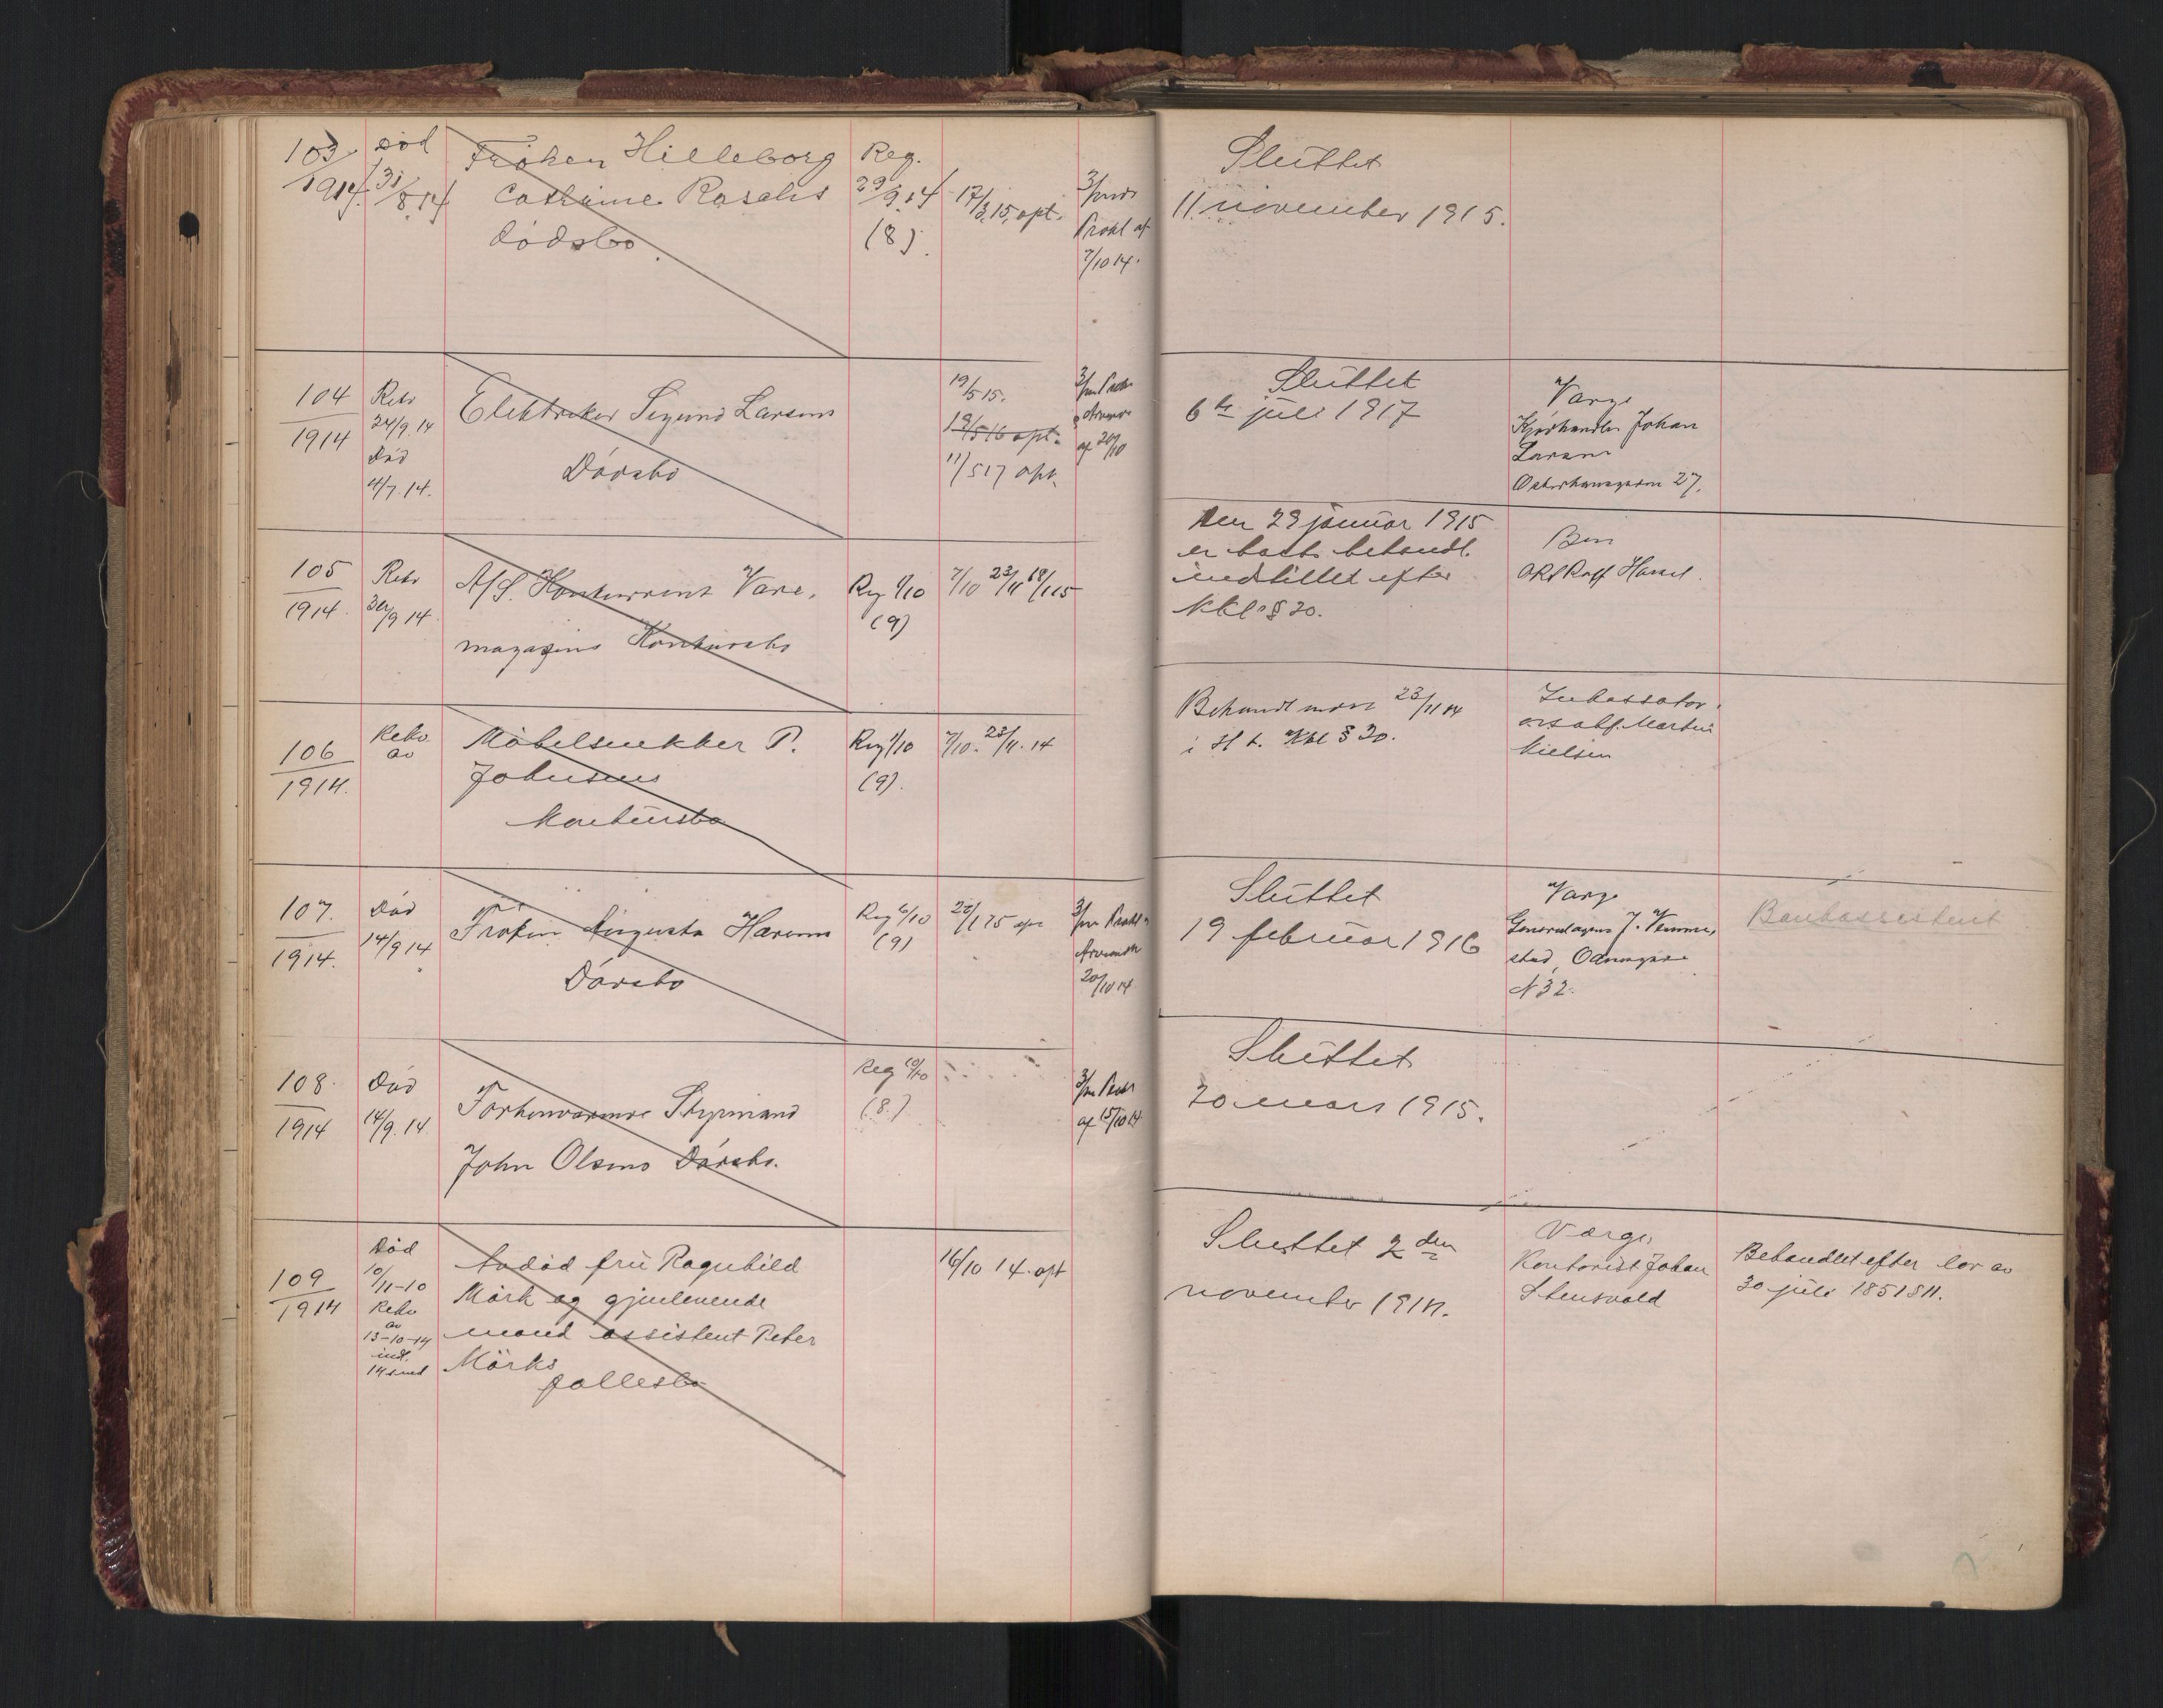 103/1914. Död 31/8 14
Fröken Hilleborg
Cathrine Rosahls
dödsbo.
Reg.
29/9 14
(8).
17/3.15. opt.
3/mdr
Prokl af
7/10 14.
Sluttet
11. november 1915.
104
1914
Rekv
24/9.14
Död
4/7.14.
Elektriker Sigurd Larsens
Dödsbo
19/5 15.
19/5 16 opt.
11/5 17 opt.
3/m Prokl
af 20/10
Sluttet
6te juli 1917
Værge
Johan
Larsen
27.
105
1914.
Rekv
30/9 14
A/S. Konkurrent Vare-
magazins Konkursbo
Reg 1/10
(9)
7/10 23/11 18/1 15
Den 29 januar 1915
er boets behandl.
indstillet efter
Kkl § 20.
ORS Rolf
106
1914.
Rekv.
av
Möbelsnekker P.
Johnsens
Konkursbo
Reg 1/10
(9).
7/10. 23/11. 14
Behandl 23/11 14
i H. t. Kkl § 20.
Inkassator
Martin
Nielsen
107.
1914.
Död
14/9 14
Fröken Augusta Hansens
Dödsbo
Reg 6/10
(9)
3/m Prokl
20/10 14
Sluttet
19 februar 1916
Værge
Generalagent J. Vemme-
stad,
N 32.
108.
1914
Död
14/9.14.
Forhenværende Styrmand
John Olsens Dödsbo.
Reg 10/10
(8.)
3/m Prokl
af 15/10 14
Sluttet
20 mars 1915.
109
1914
Död
10/11-10
Rekv
av
13-10-14
ind.
14 s md
Avdöd frü Ragnhild
Mörk og gjenlevende
mand assistent Peter
Mörks
fællesbo
16/10 14. opt
Sluttet 2den
november 1914.
Værge,
Kontorist Johan
Stensvold
Behandlet efter lov av
30 juli 1851 § 11.